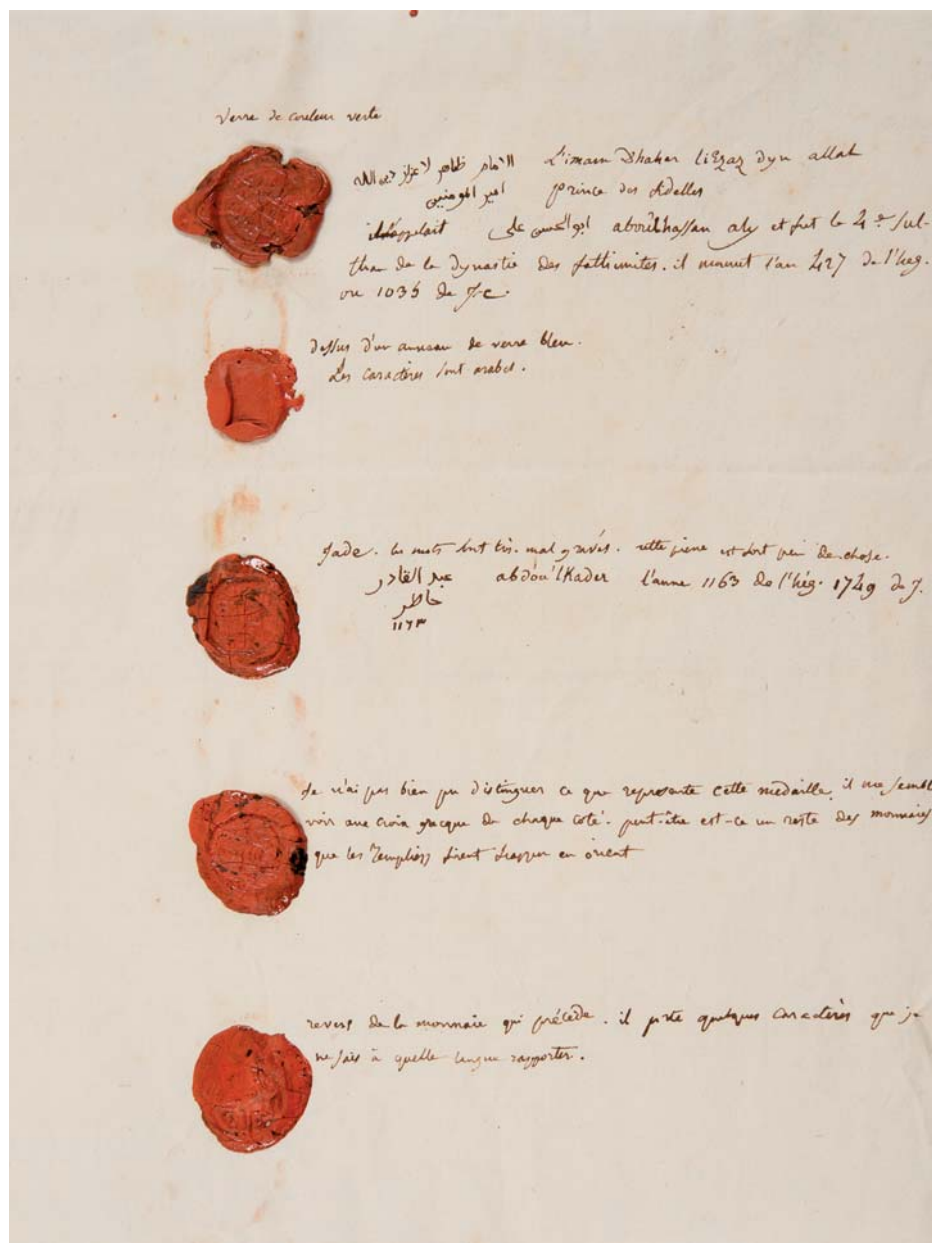 verre de couleur verte
الامام ظاهر لاعزاز دين الله L'imam Dhaher liEzaz dyn allah
امير المومنين prince des fidelles
il s'appelait ابو الحسن على abou'lhassan aly et fut le 4e sul-
than de la dynastie des fathimites. il mourut l'an 427 de l'heg.
ou 1035 de J-C.
dessus d'un anneau de verre bleu.
Les caractères sont arabes.
Jade. les mots sont très-mal gravés. cette pierre est fort peu de chose.
عبد القادر abdou'lKader l'anne 1163 de l'hég. 1749 de J.
خاطر
١١٦٣
Je n'ai pas bien pu distinguer ce que représente cette medaille. il me sembl
voir une croix grecque de chaque coté. peut-être est-ce un reste des monnaies
que les Templiers firent frapper en orient
revers de la monnaie qui précède. il porte quelques caractères que je
ne sais à quelle langue rapporter.